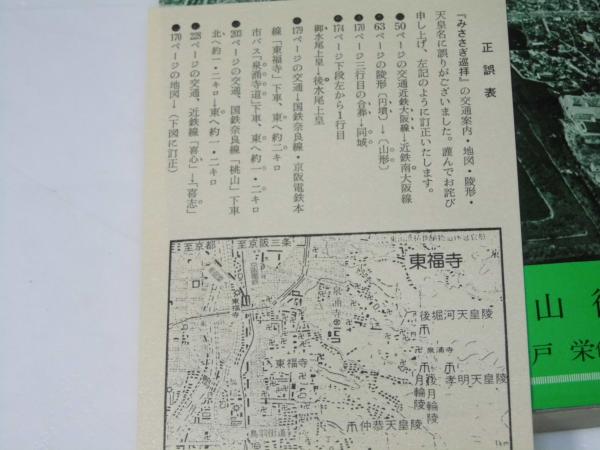 正誤表
『みささぎ巡拝』の交通案内・地図・陵形・
天皇名に誤りがございました。謹んでお詫び
申し上げ、左記のように訂正いたします。
●50ページの交通近鉄大阪線→近鉄南大阪線
●63ページの陵形〔円墳〕→〔山形〕
●170ページ三行目の合葬→同域
●174ページ下段左から1行目
御水尾上皇→後水尾上皇
●179ページの交通→国鉄奈良線・京阪電鉄本
線「東福寺」下車、東へ約二キロ
市バス「泉涌寺道」下車、東へ約一・二キロ
●203ページの交通、国鉄奈良線「桃山」下車
北へ約一・二キロ→東へ約一・二キロ
●228ページの交通、近鉄線「喜心」→「喜志」
●170ページの地図→(下図に訂正)
至京都
至京阪三条
東福寺
後堀河天皇陵
泉涌寺
泉涌寺
東福寺
東福寺
後月輪陵
月輪陵
孝明天皇陵
仲恭天皇陵
鳥羽街道
1km
山
戸 栄